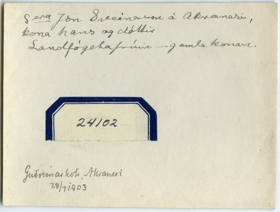 Sera Jón Sveinsson á Akranesi,
kona hans og dóttir
Landfógetafrúin — gamla konan.
24102
Guðrúnarkoti, Akranesi
28/7 1903